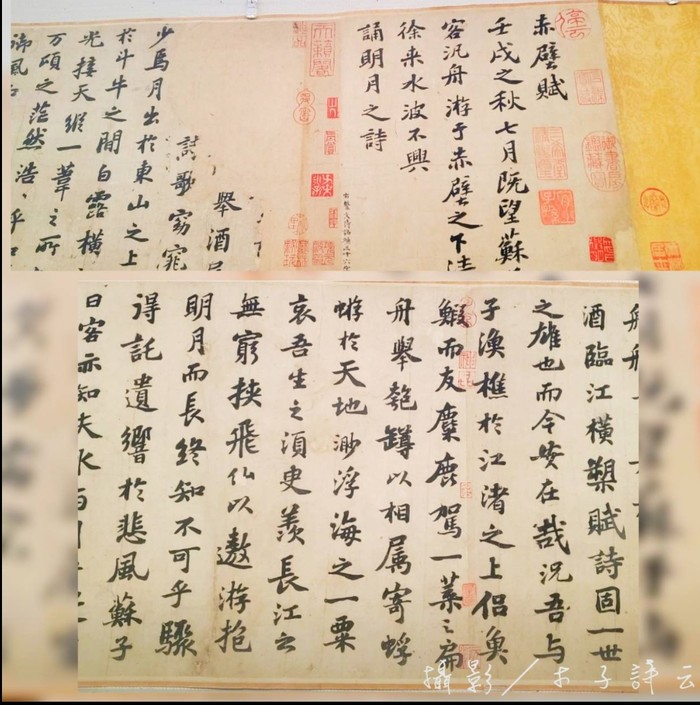 赤壁賦
壬戌之秋七月既望蘇
客汎舟游于赤壁之下清
徐来水波不興
誦明月之詩
天籟閣
舉酒
詩歌窈窕
少焉月出於東山之上
於斗牛之間白露橫
光接天縱一葦之所
万頃之茫然浩〻乎
御風
酒臨江橫槊賦詩固一世
之雄也而今安在哉況吾与
子漁樵於江渚之上侶魚
鰕而友麋鹿駕一葉之扁
舟舉匏罇以相属寄蜉
蝣於天地渺浮海之一粟
哀吾生之須臾羨長江之
無窮挾飛仙以遨游抱
明月而長終知不可乎驟
得託遺響於悲風蘇子
曰客亦知夫水与月
攝影／木子評云